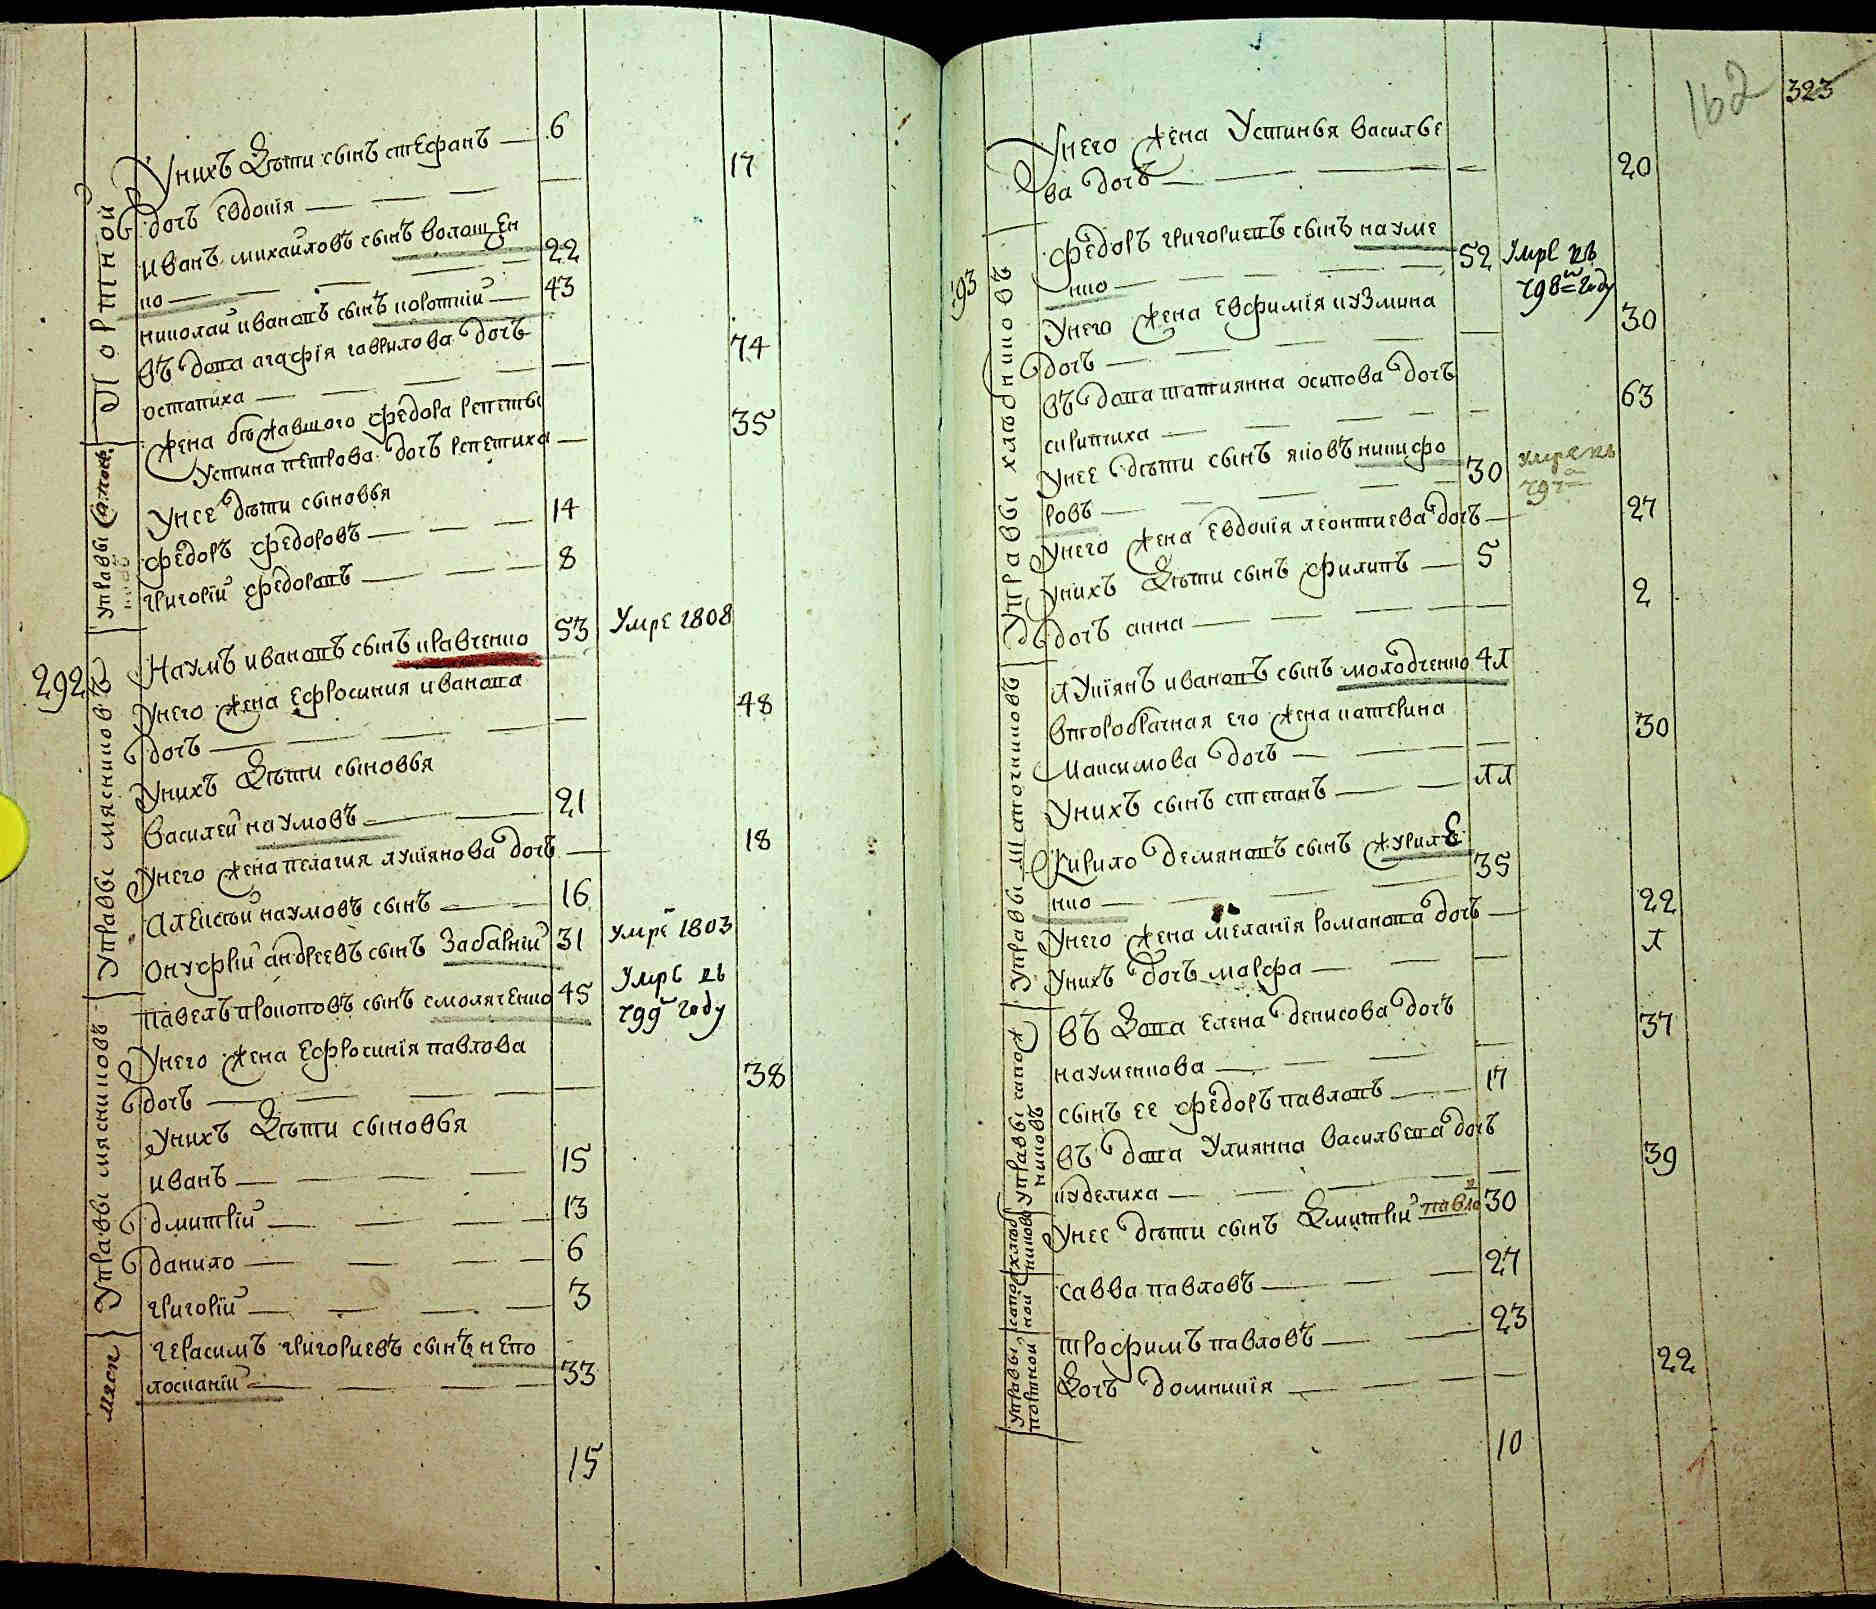 Портной
Унихъ Дѣти сынъ стефанъ — 6
дочь евдокія — 17
иванъ михайловъ сынъ волощен
ко — 22
николай ивановъ сынъ короткій — 43
въдова агафія гаврилова дочь
остапиха — 74
жена бѣжавшого федора репеты
устина петрова дочь репетиха — 35
Унее дѣти сыновья
федоръ федоровъ — 14
григорій федоровъ — 8
292
Управы мясниковъ
Наумъ ивановъ сынъ кравченко 53 умре 1808
Унего жена ефросиния иванова
дочь — 48
Унихъ Дѣти сыновья
василей наумовъ — 21
Унего жена пелагия лукіянова дочь — 18
Алексѣй наумовъ сынъ — 16
Онуфрій андреевъ сынъ Забарній 31 умре 1803
Управы мясниковъ
павелъ прокоповъ сынъ смоляченко 45 Умре въ
799м году
Унего жена Ефросинія павлова
дочь — 38
Унихъ Дѣти сыновья
иванъ — 15
дмитрій — 13
данило — 6
григорій — 3
мясн
герасимъ григориевъ сынъ непо
лосканій — 33
15
162 323
Унего жена Устинья василье
ва дочь — 20
93
Управы хлѣбниковъ
федоръ григориевъ сынъ науме
нко — 52 Умре въ
798м году
Унего жена евфимія кузмина
дочь — 30
въдова татиянна осипова дочь
скрипчиха — 63
Унее дѣти сынъ яковъ никифо
ровъ — 30 умре въ
Унего жена Евдокія леонтиева дочь — 27
Унихъ Дѣти сынъ филипъ — 5
дочь анна — 2
лукіянъ ивановъ сынъ молодченко 41
второбрачная его жена катерина
Максимова дочь — 30
Унихъ сынъ степанъ — 11
Кирило демяновъ сынъ журиле
нко — 35
Унего жена меланія романова дочь — 22
Унихъ дочь марфа — 1
Въ Дова елена денисова дочь
науменкова — 37
сынъ ее федоръ павловъ — 17
въ дова Улиянна васильева дочь
куделиха — 39
Унее дѣти сынъ Дмитрій павло 30
савва павловъ — 27
трофимъ павловъ — 23
Дочь домникія — 22
Управы
портной
10